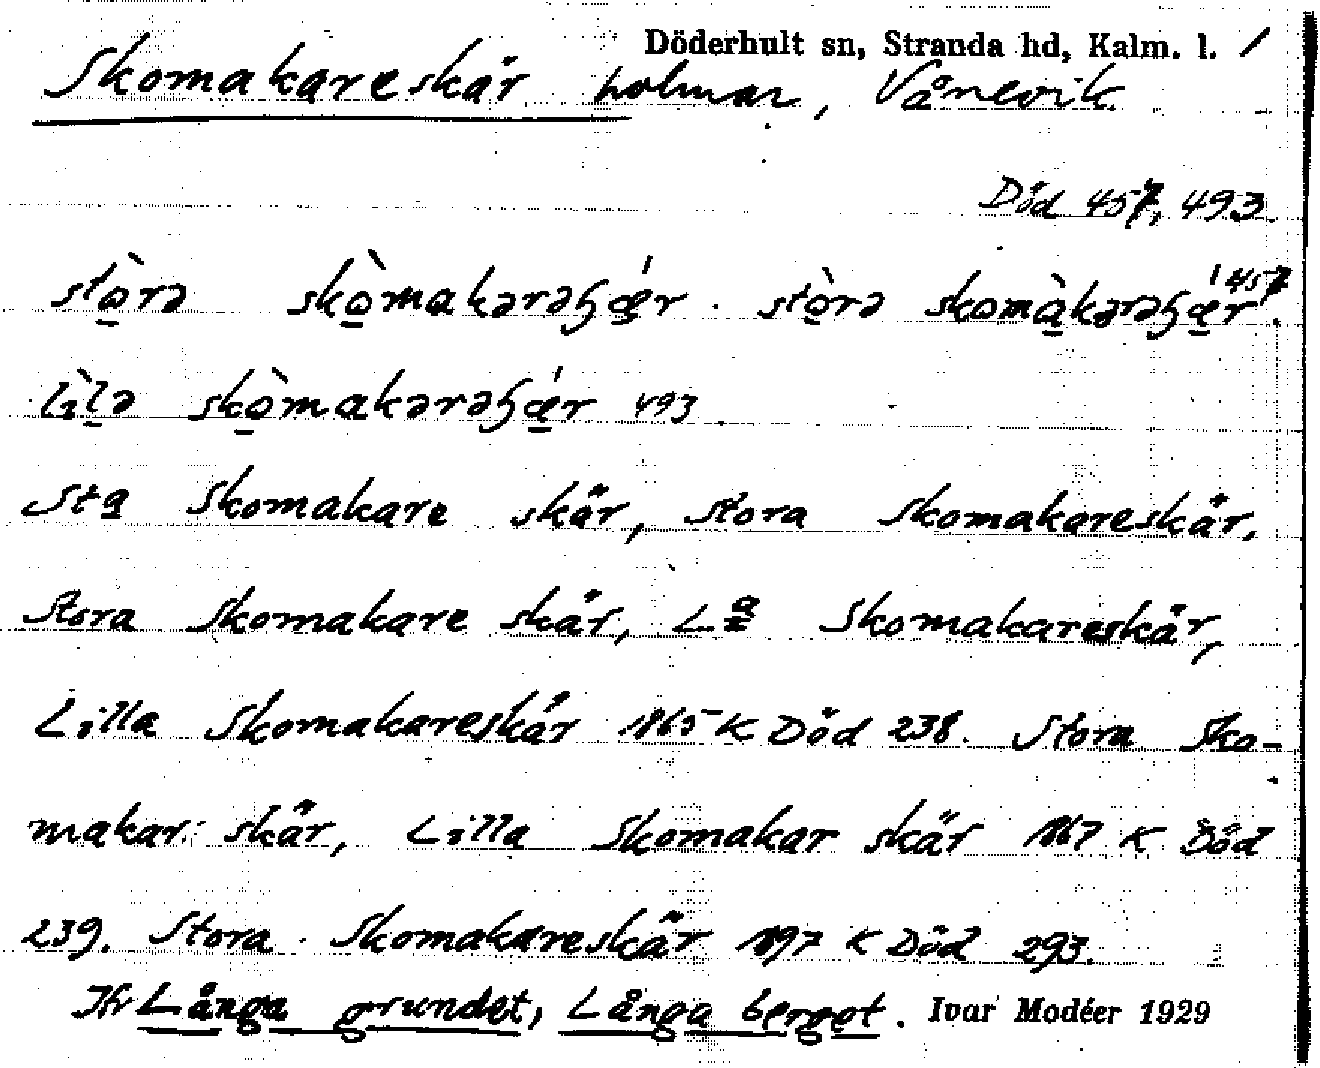 Döderhult sn, Stranda hd, Kalm. l. /
Skomakareskär holmar, Vånevik
Död 457, 493.
stò̱rə skò̱makərəɧǽ̱r . stò̱rə skomà̱kərəɧǽ̱r 457.
lìḻə skò̱makərəɧǽ̱r 493
Sta Skomakare skär, Stora Skomakareskär,
Stora Skomakare skär, La Skomakareskär,
Lilla Skomakareskär 1865 K Död 238. Stora Sko-
makar skär, Lilla Skomakar skär 1867 K Död
239. Stora Skomakareskär 1897 K Död 293.
Jfr Långa grundet, Långa berget. Ivar Modéer 1929